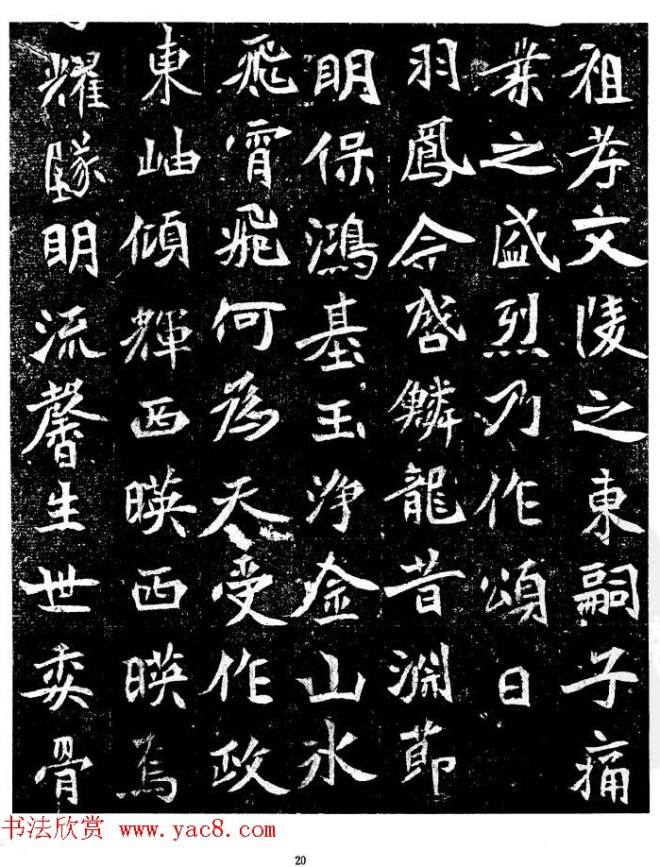 祖孝文陵之東嗣子痛
業之盛烈乃作頌曰
羽鳳今啓鱗龍昔淵節
明保鴻基玉净金山水
飛霄飛何為天受作政
東岫傾輝西暎西暎焉
燿隧明流馨生世委骨
书法欣赏 www.yac8.com
20